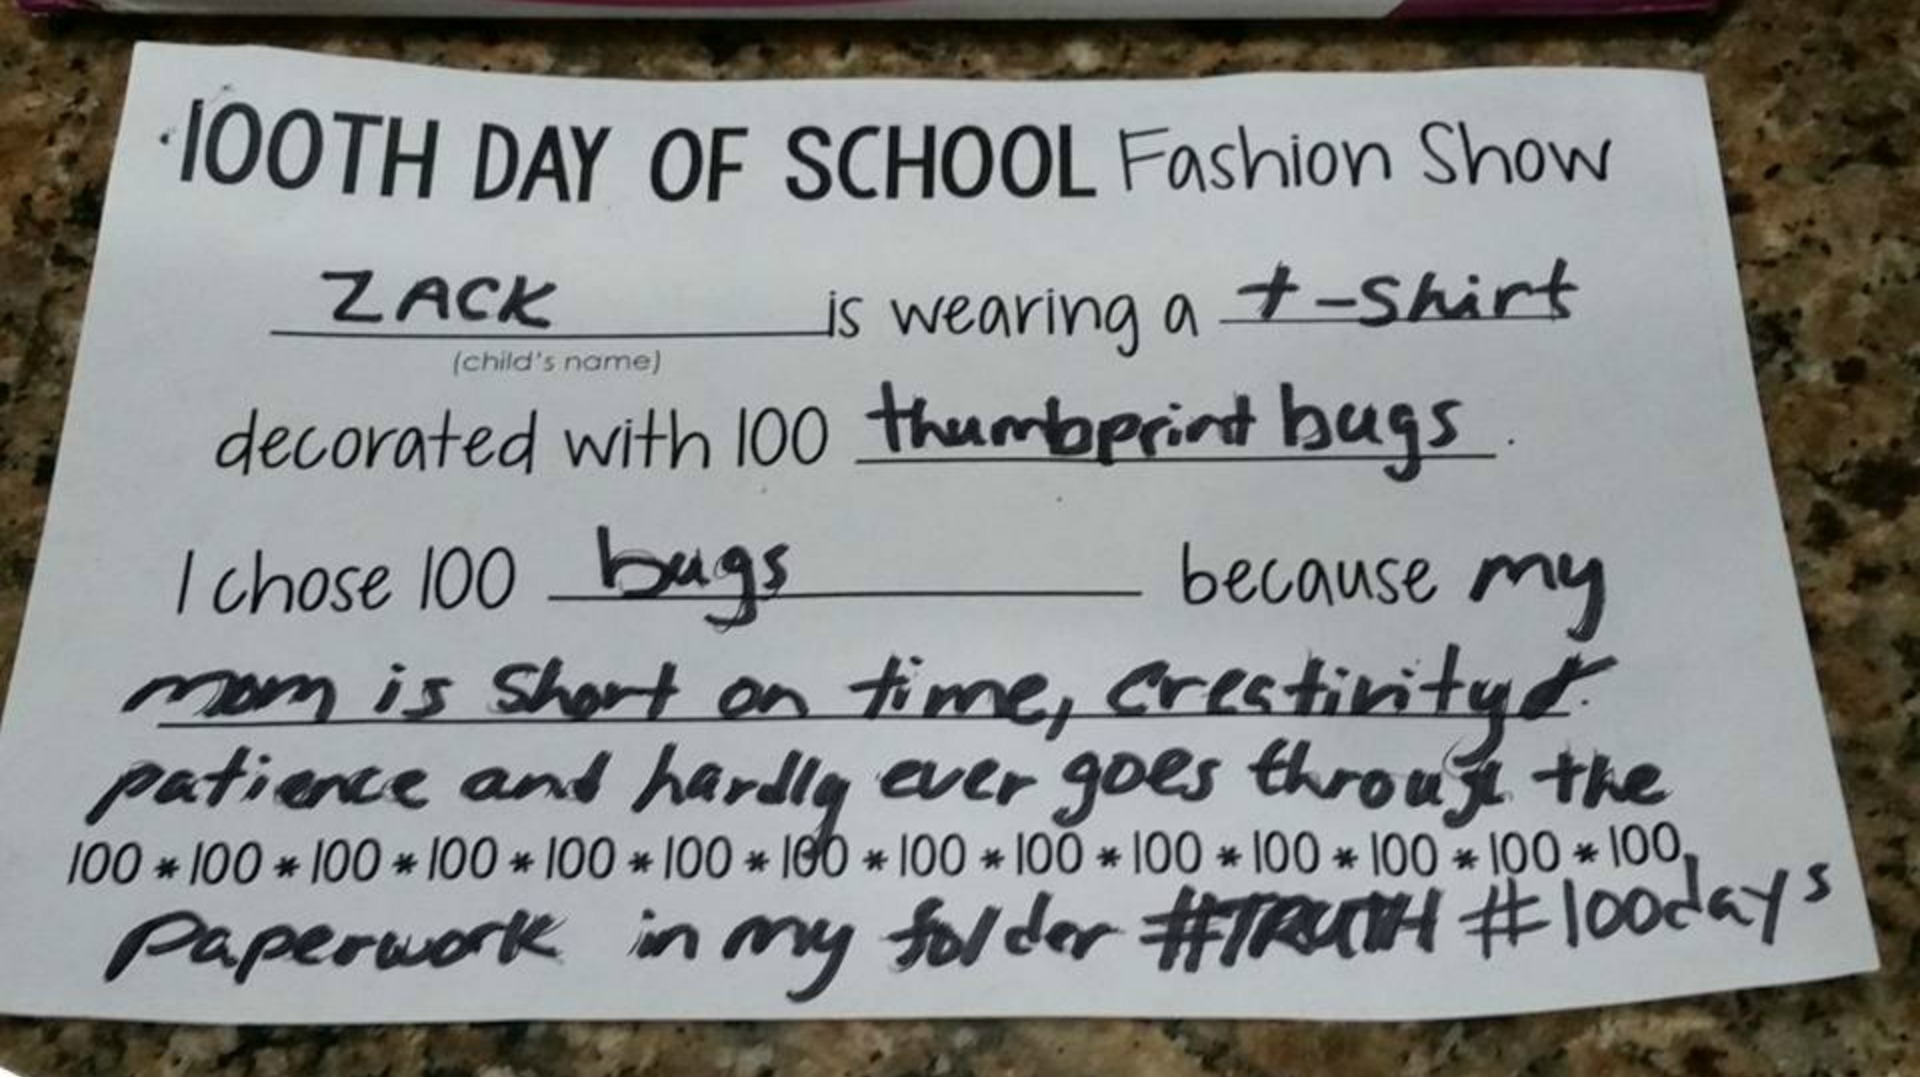 100TH DAY OF SCHOOL Fashion Show
ZACK is wearing a t-shirt
(child's name)
decorated with 100 thumbprint bugs.
I chose 100 bugs because my
mom is short on time, creativity &
patience and hardly ever goes through the
100 * 100 * 100 * 100 * 100 * 100 * 100 * 100 * 100 * 100 * 100 * 100 * 100 * 100
paperwork in my folder #TRUTH #100days